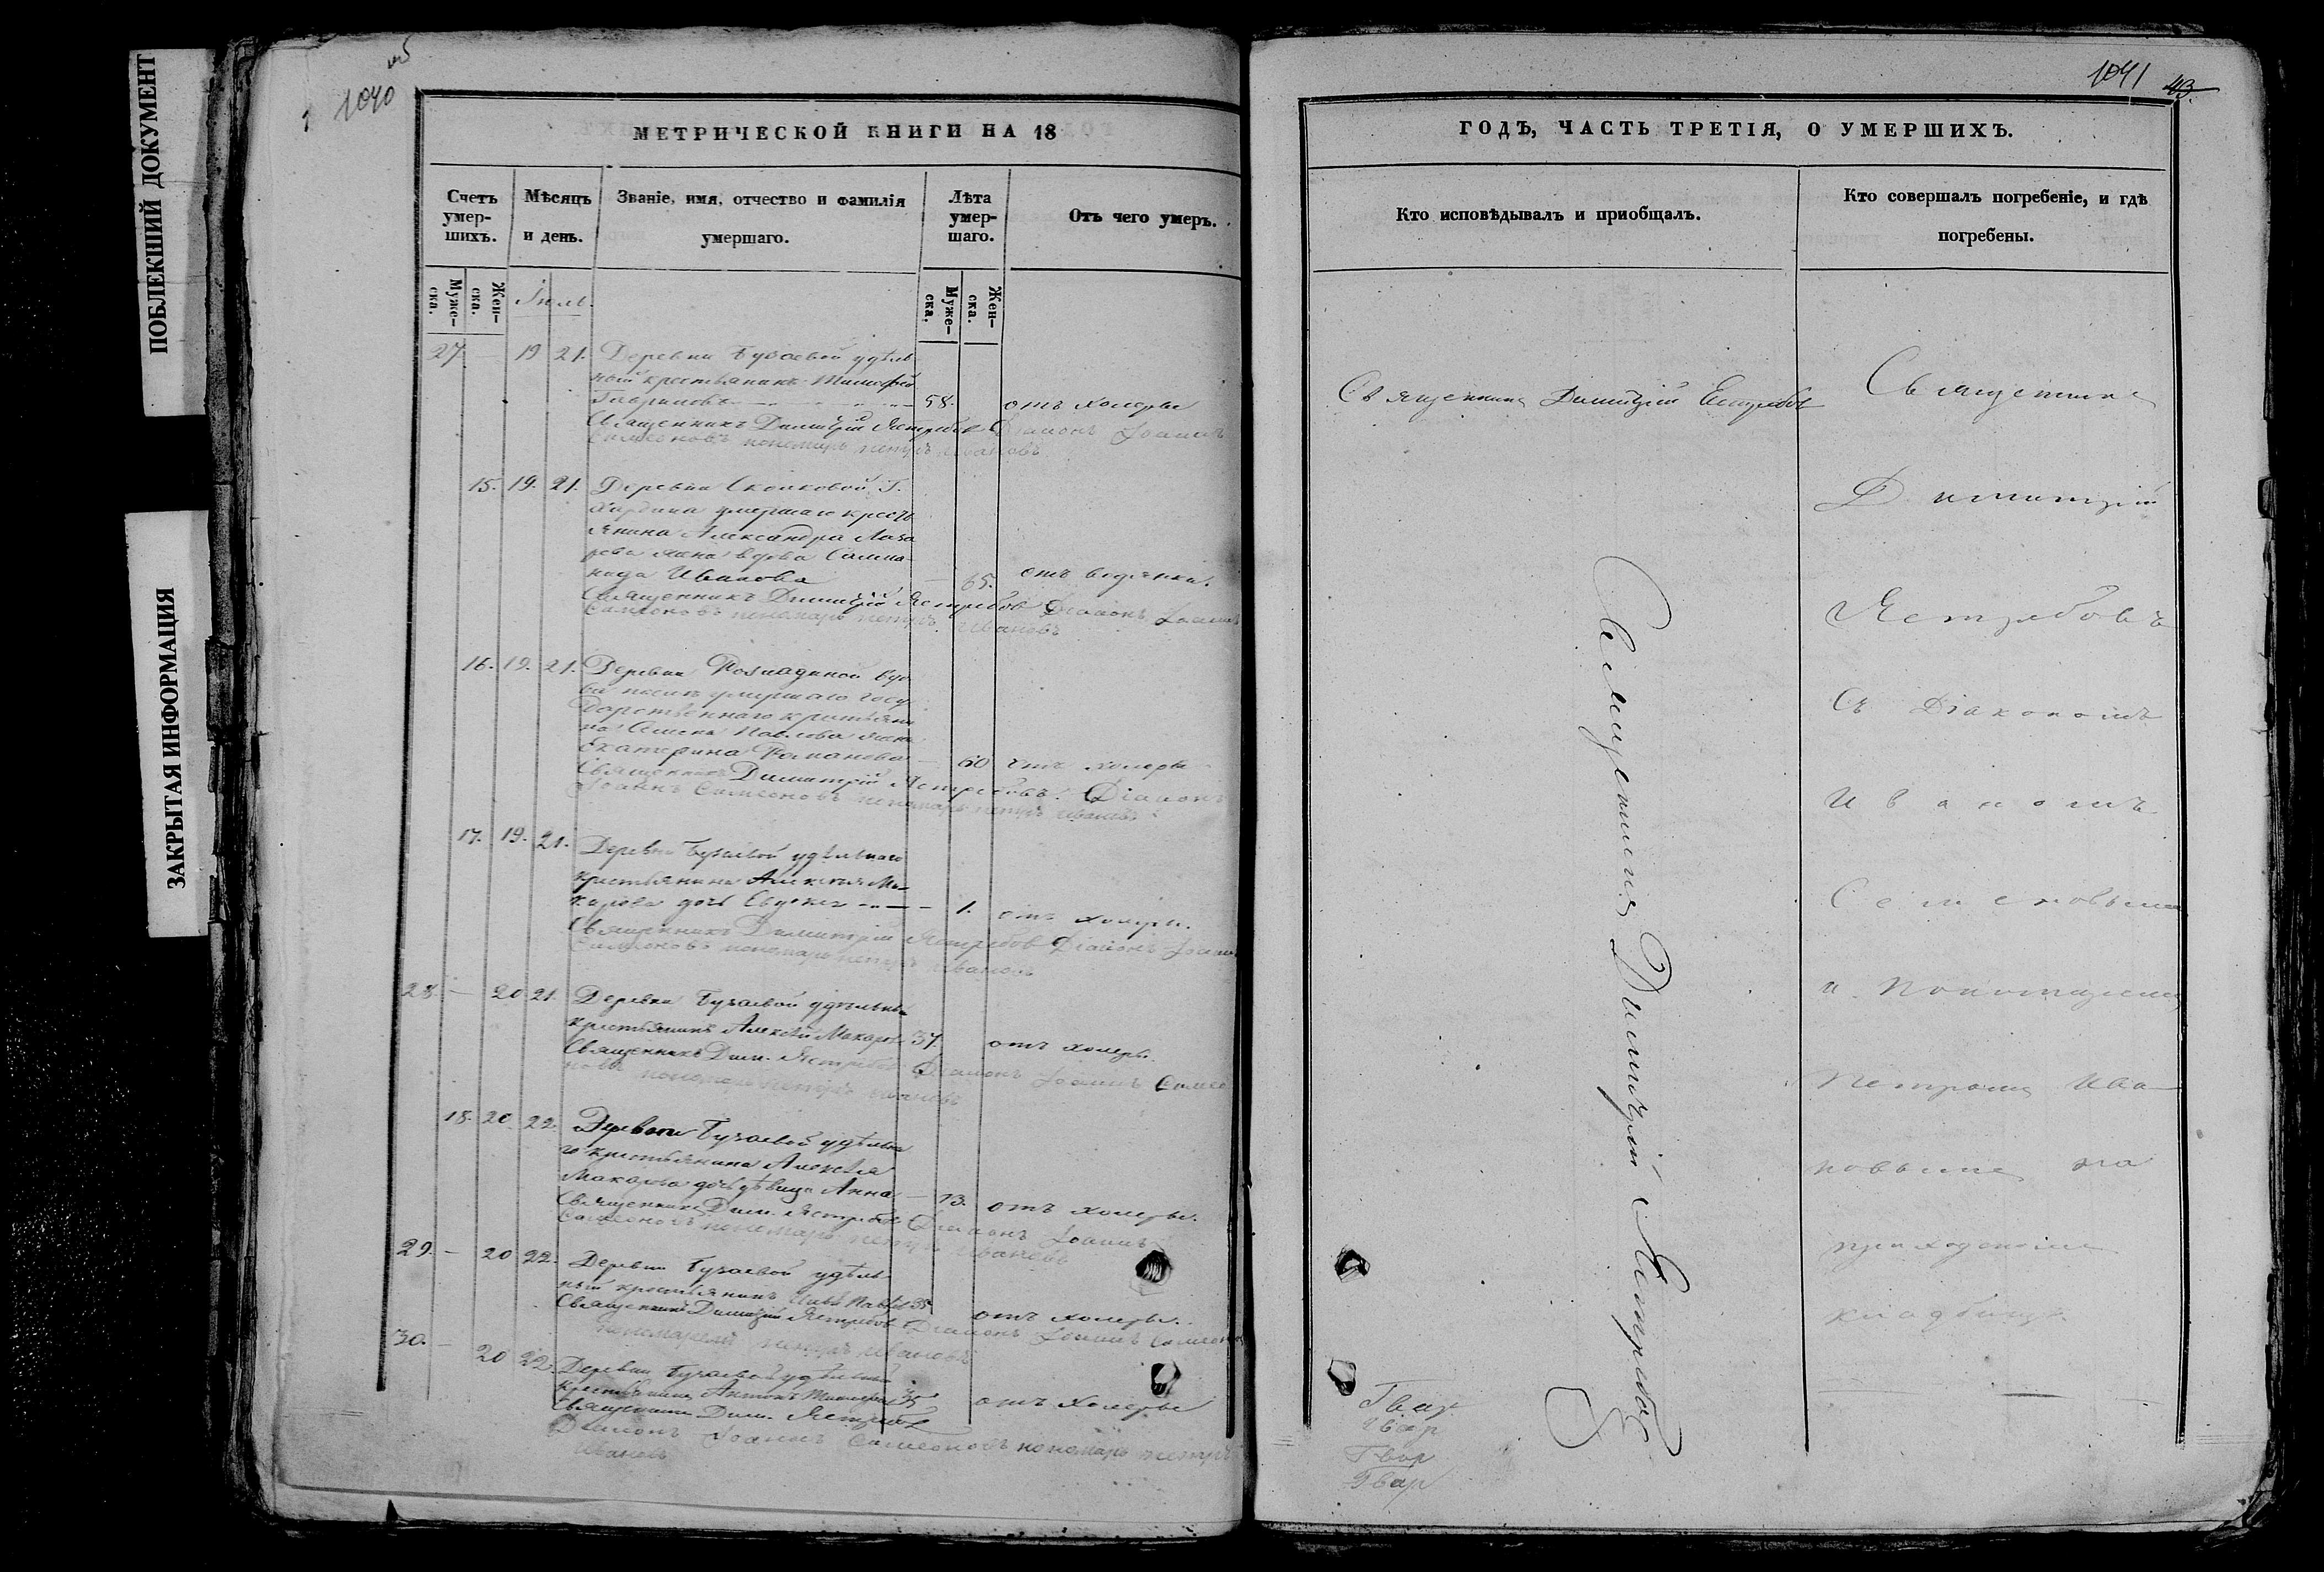 ПОБЛЕКШИЙ ДОКУМЕНТ
ЗАКРЫТАЯ ИНФОРМАЦИЯ
1040
МЕТРИЧЕСКОЙ КНИГИ НА 18
Счетъ умер-шихъ.
Мѣсяцъ и день.
Званіе, имя, отчество и фамилія умершаго.
Лѣта умер-шаго.
Отъ чего умеръ.
Муже-ска.
Жен-ска.
Муже-ска.
Жен-ска.
Іюль.
27 — 19 21. Деревни Бузаевой удѣль-
ный крестьянинъ Тимофей
Гавриловъ 58. отъ холеры
Священникъ Димитрій Ястребовъ Діаконъ Іоаннъ
Симеоновъ пономарь Петръ Ивановъ
15. 19. 21. Деревни
умершаго кресть
янина Александра Лаза
рева жена вдова Соломо-
нида Иванова — 65. отъ водянки.
Священникъ Димитрій Ястребовъ Діаконъ Іоаннъ
Симеоновъ пономарь Петръ Ивановъ
16. 19. 21. Деревни вдо
ва умершаго госу
дарственнаго крестьяни
на Павлова жена
Екатерина Романова — 60 отъ холеры
Священникъ Димитрій Ястребовъ. Діаконъ
Іоаннъ Симеоновъ пономарь Петръ Ивановъ
17. 19. 21. Деревни Бузаевой удѣльнаго
крестьянина Алексея Ма-
карова дочь — 1. отъ холеры.
Священникъ Димитрій Ястребовъ Діаконъ Іоаннъ
Симеоновъ пономарь Петръ Ивановъ
28. — 20 21. Деревни Бузаевой удѣльный
крестьянинъ Алексѣй Макаровъ 37. отъ холеры.
Священникъ Дим. Ястребовъ Діаконъ Іоаннъ Симео
новъ пономарь Петръ Ивановъ
18. 20. 22. Деревни Бузаевой удѣльна
го крестьянина Алексѣя
Макарова дочь дѣвица Анна — 13. отъ холеры.
Священникъ Дим. Ястребовъ Діаконъ Іоаннъ
Симеоновъ пономарь Петръ Ивановъ
29. — 20 22. Деревни Бузаевой удѣль-
ный крестьянинъ 35 отъ холеры.
Священникъ Димитрій Ястребовъ Діаконъ Іоаннъ Симеонов
пономарь Петръ Ивановъ
30. — 20 22. Деревни Бузаевой удѣльный
крестьянинъ Антонъ 35 отъ холеры
Священникъ Дим. Ястребовъ
Діаконъ Іоаннъ Симеоновъ пономарь Петръ
Ивановъ
1041 43.
ГОДЪ, ЧАСТЬ ТРЕТІЯ, О УМЕРШИХЪ.
Кто исповѣдывалъ и приобщалъ.
Кто совершалъ погребеніе, и гдѣ погребены.
Священникъ Димитрій Ястребовъ
Священникъ
Димитрій
Ястребовъ
Съ Діакономъ
Иваномъ
Семеновымъ
и Пономаремъ
Петромъ Ива
новымъ на
приходскомъ
кладбищѣ.
Священникъ Димитрій Ястребовъ